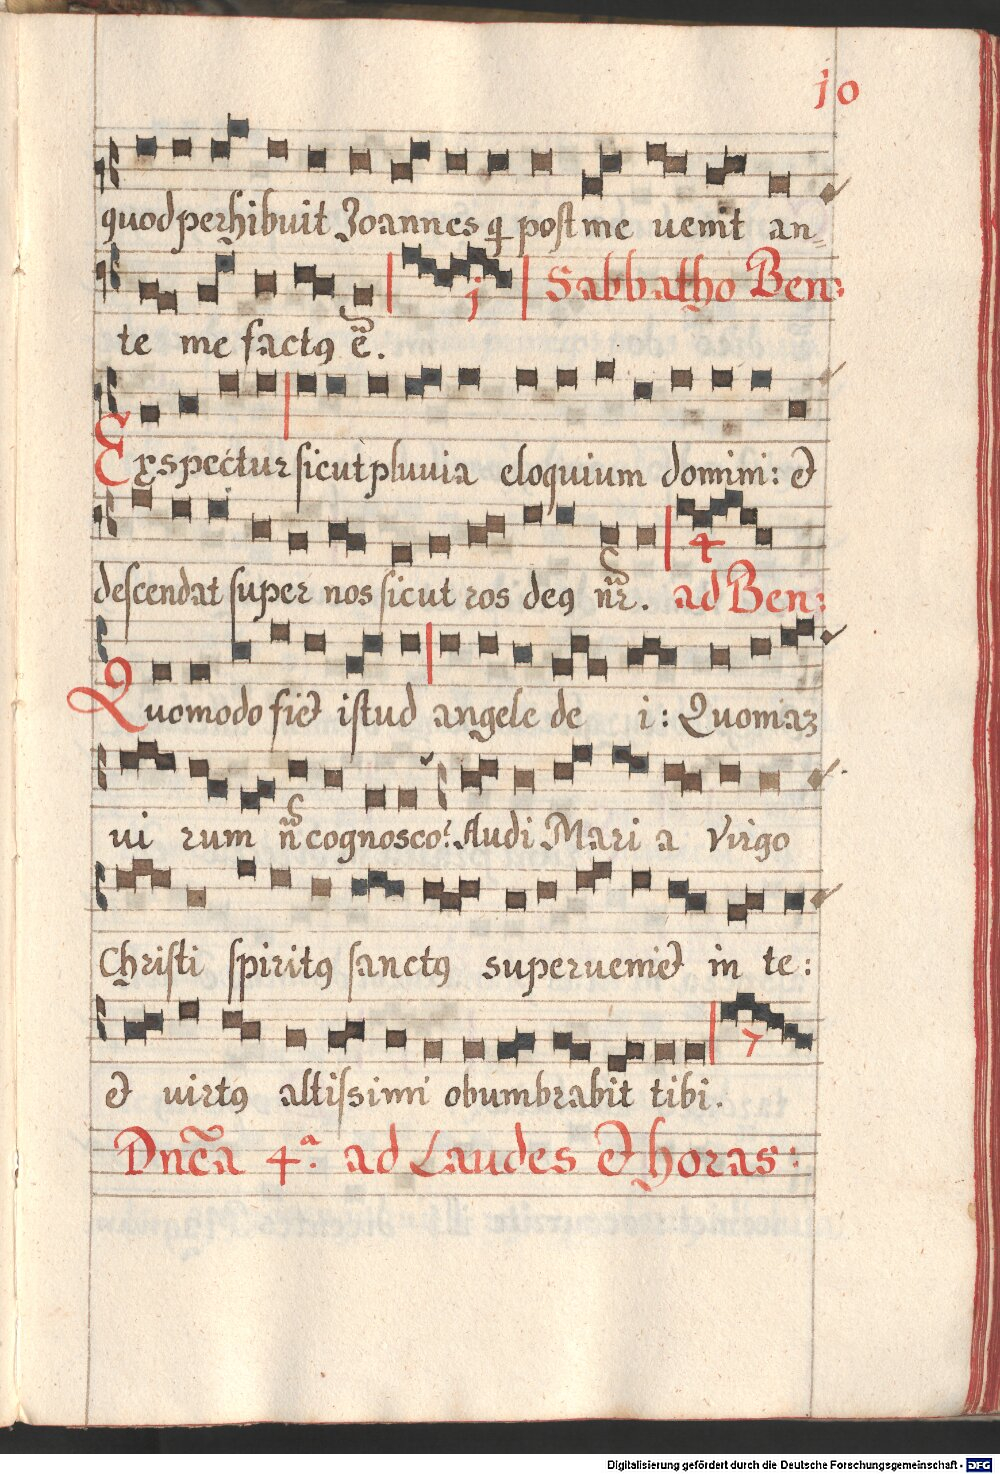 10
quod perhibuit Joannes q̄ post me venit an=
j Sabbatho Ben:
te me factꝰ ē̃.
Exspectur sicut pluvia eloquium domini: et
4
descendat super nos sicut ros deꝰ nr̃. ad Ben:
Quomodo fiet istud angele de i: Quoniaʒ
vi rum ñ cognosco? Audi Mari a Virgo
Christi spiritꝰ sanctꝰ superueniet in te:
7
et virtꝰ altissimi obumbrabit tibi.
Dn̄ca 4ª. ad Laudes et horas:
Digitalisierung gefördert durch die Deutsche Forschungsgemeinschaft - DFG